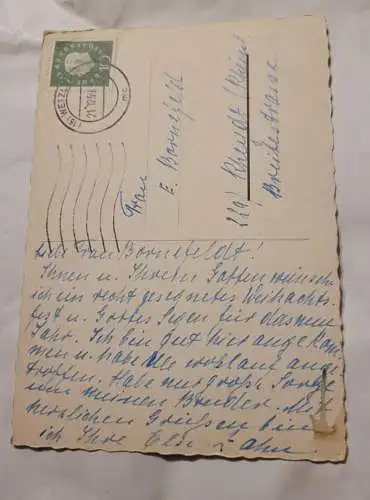 (16) WETZLAR
21.12.59
10
Frau
E. Bornefeld
22a) Rheydt (Rhld)
Breitestrasse
Liebe Frau Bornefeldt!
Ihnen u. Ihrem Gatten wünsch
ich ein recht gesegnetes Weihnachts-
fest u. Gottes Segen für das neue
Jahr. Ich bin gut hier angekom-
men u. habe alle wohlauf ange-
troffen. Habe nur große Sorge
um meinen Bruder. Mit
herzlichen Grüßen bin
ich Ihre